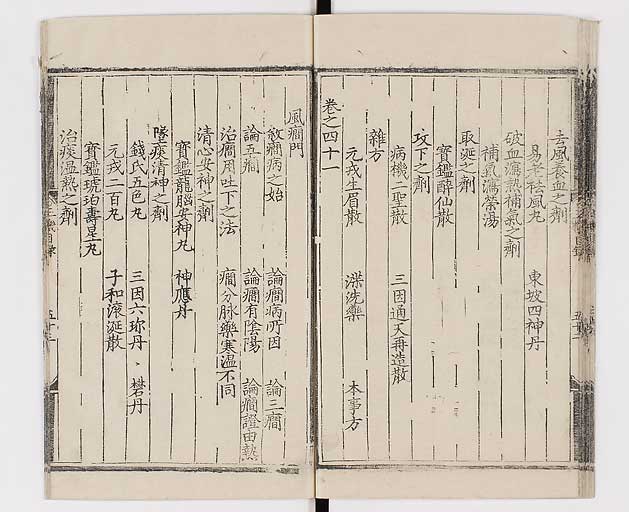 去風養血之劑
易老祛風丸　東坡四神丹
破血瀉熱補氣之劑
補氣瀉榮湯
取涎之劑
寶鑑醉仙散
攻下之劑
病機二聖散　三因通天再造散
雜方
元戎生眉散　洪洗藥　本事方
卷之四十一
風癎門
敘癎病之始　論癎病所因　論三癎
論五癎　論癎有陰陽　論癎證由熱
治癎用吐下之法　癎分脉藥寒溫不同
清心安神之劑
寶鑑龍腦安神丸　神應丹
墜痰清神之劑
錢氏五色丸　三因六珍丹　礬丹
元戎二百丸　子和滾涎散
寶鑑琥珀壽星丸
治痰溫熱之劑
五十三